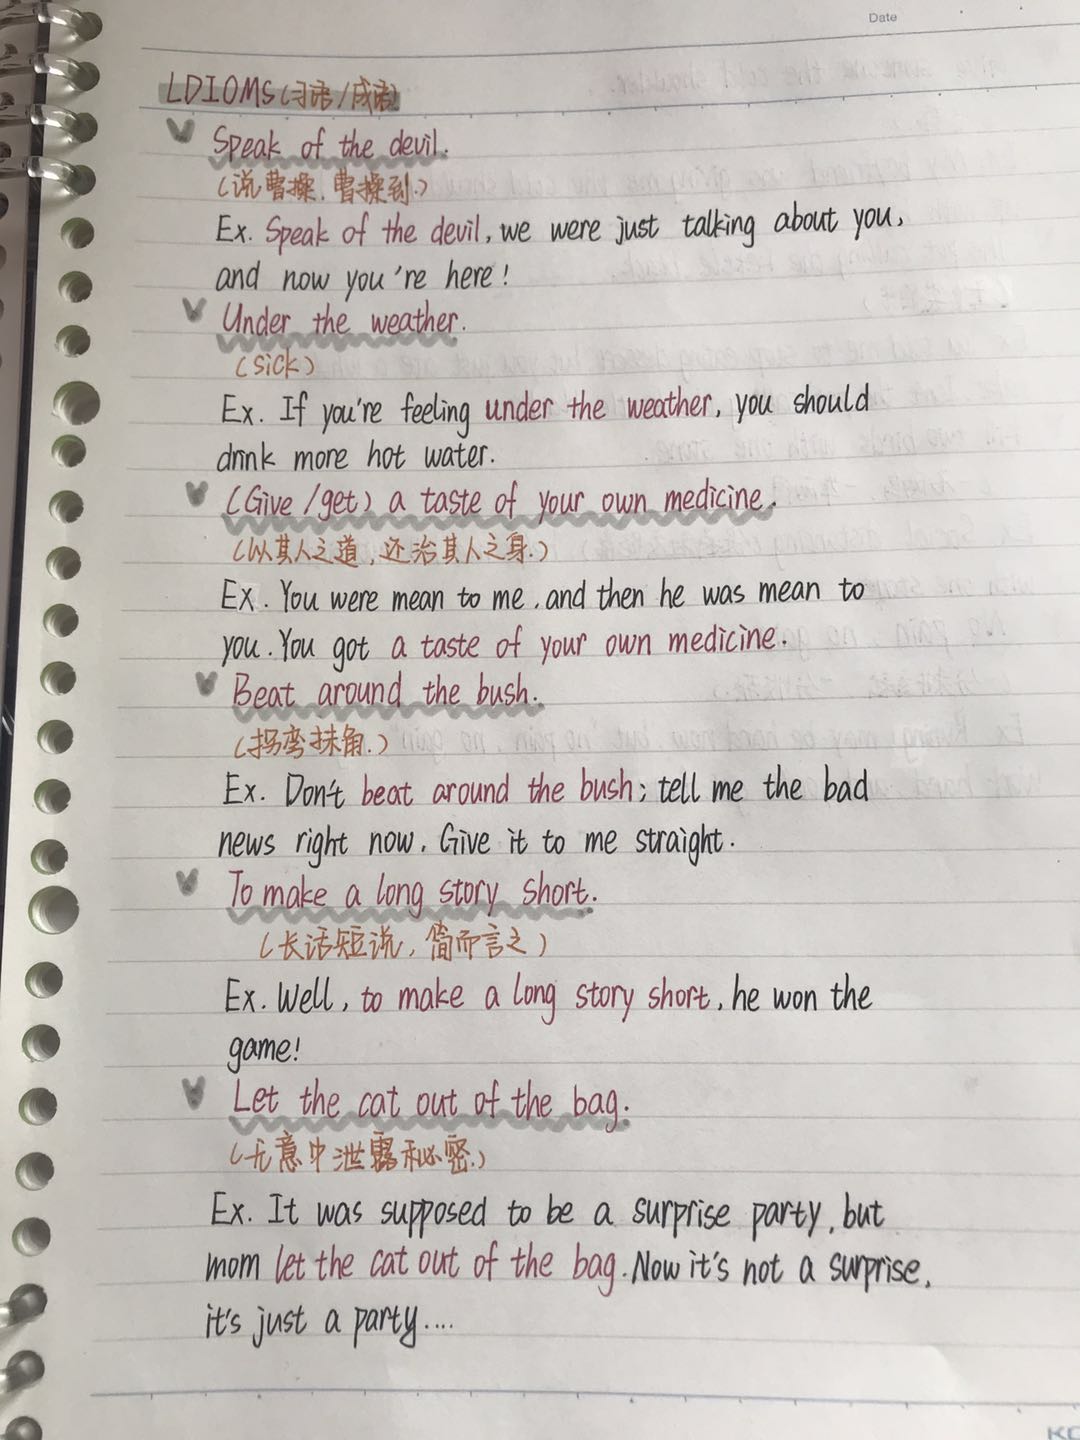 Date
LDIOMS(习语/成语)
Speak of the devil.
(说曹操,曹操到.)
Ex. Speak of the devil, we were just talking about you,
and now you're here!
Under the weather.
(sick)
Ex. If you're feeling under the weather, you should
drink more hot water.
(Give/get) a taste of your own medicine.
(以其人之道,还治其人之身.)
Ex. You were mean to me, and then he was mean to
you. You got a taste of your own medicine.
Beat around the bush.
(拐弯抹角.)
Ex. Don't beat around the bush; tell me the bad
news right now. Give it to me straight.
To make a long story short.
(长话短说,简而言之)
Ex. Well, to make a long story short, he won the
game!
Let the cat out of the bag.
(无意中泄露秘密.)
Ex. It was supposed to be a surprise party, but
mom let the cat out of the bag. Now it's not a surprise,
it's just a party....